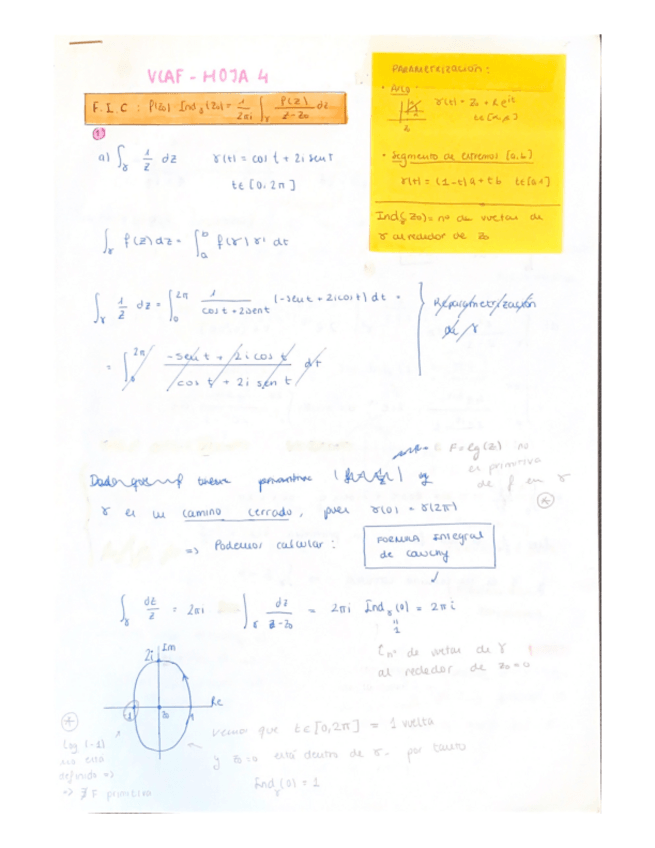 VCAF - HOJA 4
F.I.C : f(z₀) · Ind_γ(z₀) = 1/2πi ∫_γ f(z)/(z-z₀) dz
PARAMETRIZACIÓN :
· Arco
γ(t) = z₀ + R e^{it}
z₀
· Segmento de extremos [a,b]
γ(t) = (1-t)a + tb t∈[0,1]
Ind(γ, z₀) = nº de vueltas de
γ alrededor de z₀
1
a) ∫_γ 1/z dz γ(t) = cos t + 2i sen t
t∈[0,2π]
∫_γ f(z)dz = ∫_a^b f(γ) γ' dt
∫_γ 1/z dz = ∫_0^{2π} 1/(cos t + 2i sen t) (-sen t + 2i cos t) dt =
Reparametrización
de γ
= ∫_0^{2π} (-sen t + 2i cos t)/(cos t + 2i sen t) dt
F = Log(z) no
es primitiva
de f en γ
(*)
Dado que f tiene primitiva y
γ es un camino cerrado, pues γ(0) = γ(2π)
=> Podemos calcular :
FORMULA Integral
de Cauchy
∫_γ dz/z = 2πi ∫_γ dz/(z-z₀) = 2πi Ind_γ(0) = 2πi
1
nº de vueltas de γ
alrededor de z₀=0
2i Im
Re
-1 z₀ 1
(*)
Log(-1)
no está
definido =>
=> ∄ F primitiva
Vemos que t∈[0,2π] = 1 vuelta
y z₀=0 está dentro de γ. por tanto
Ind_γ(0) = 1